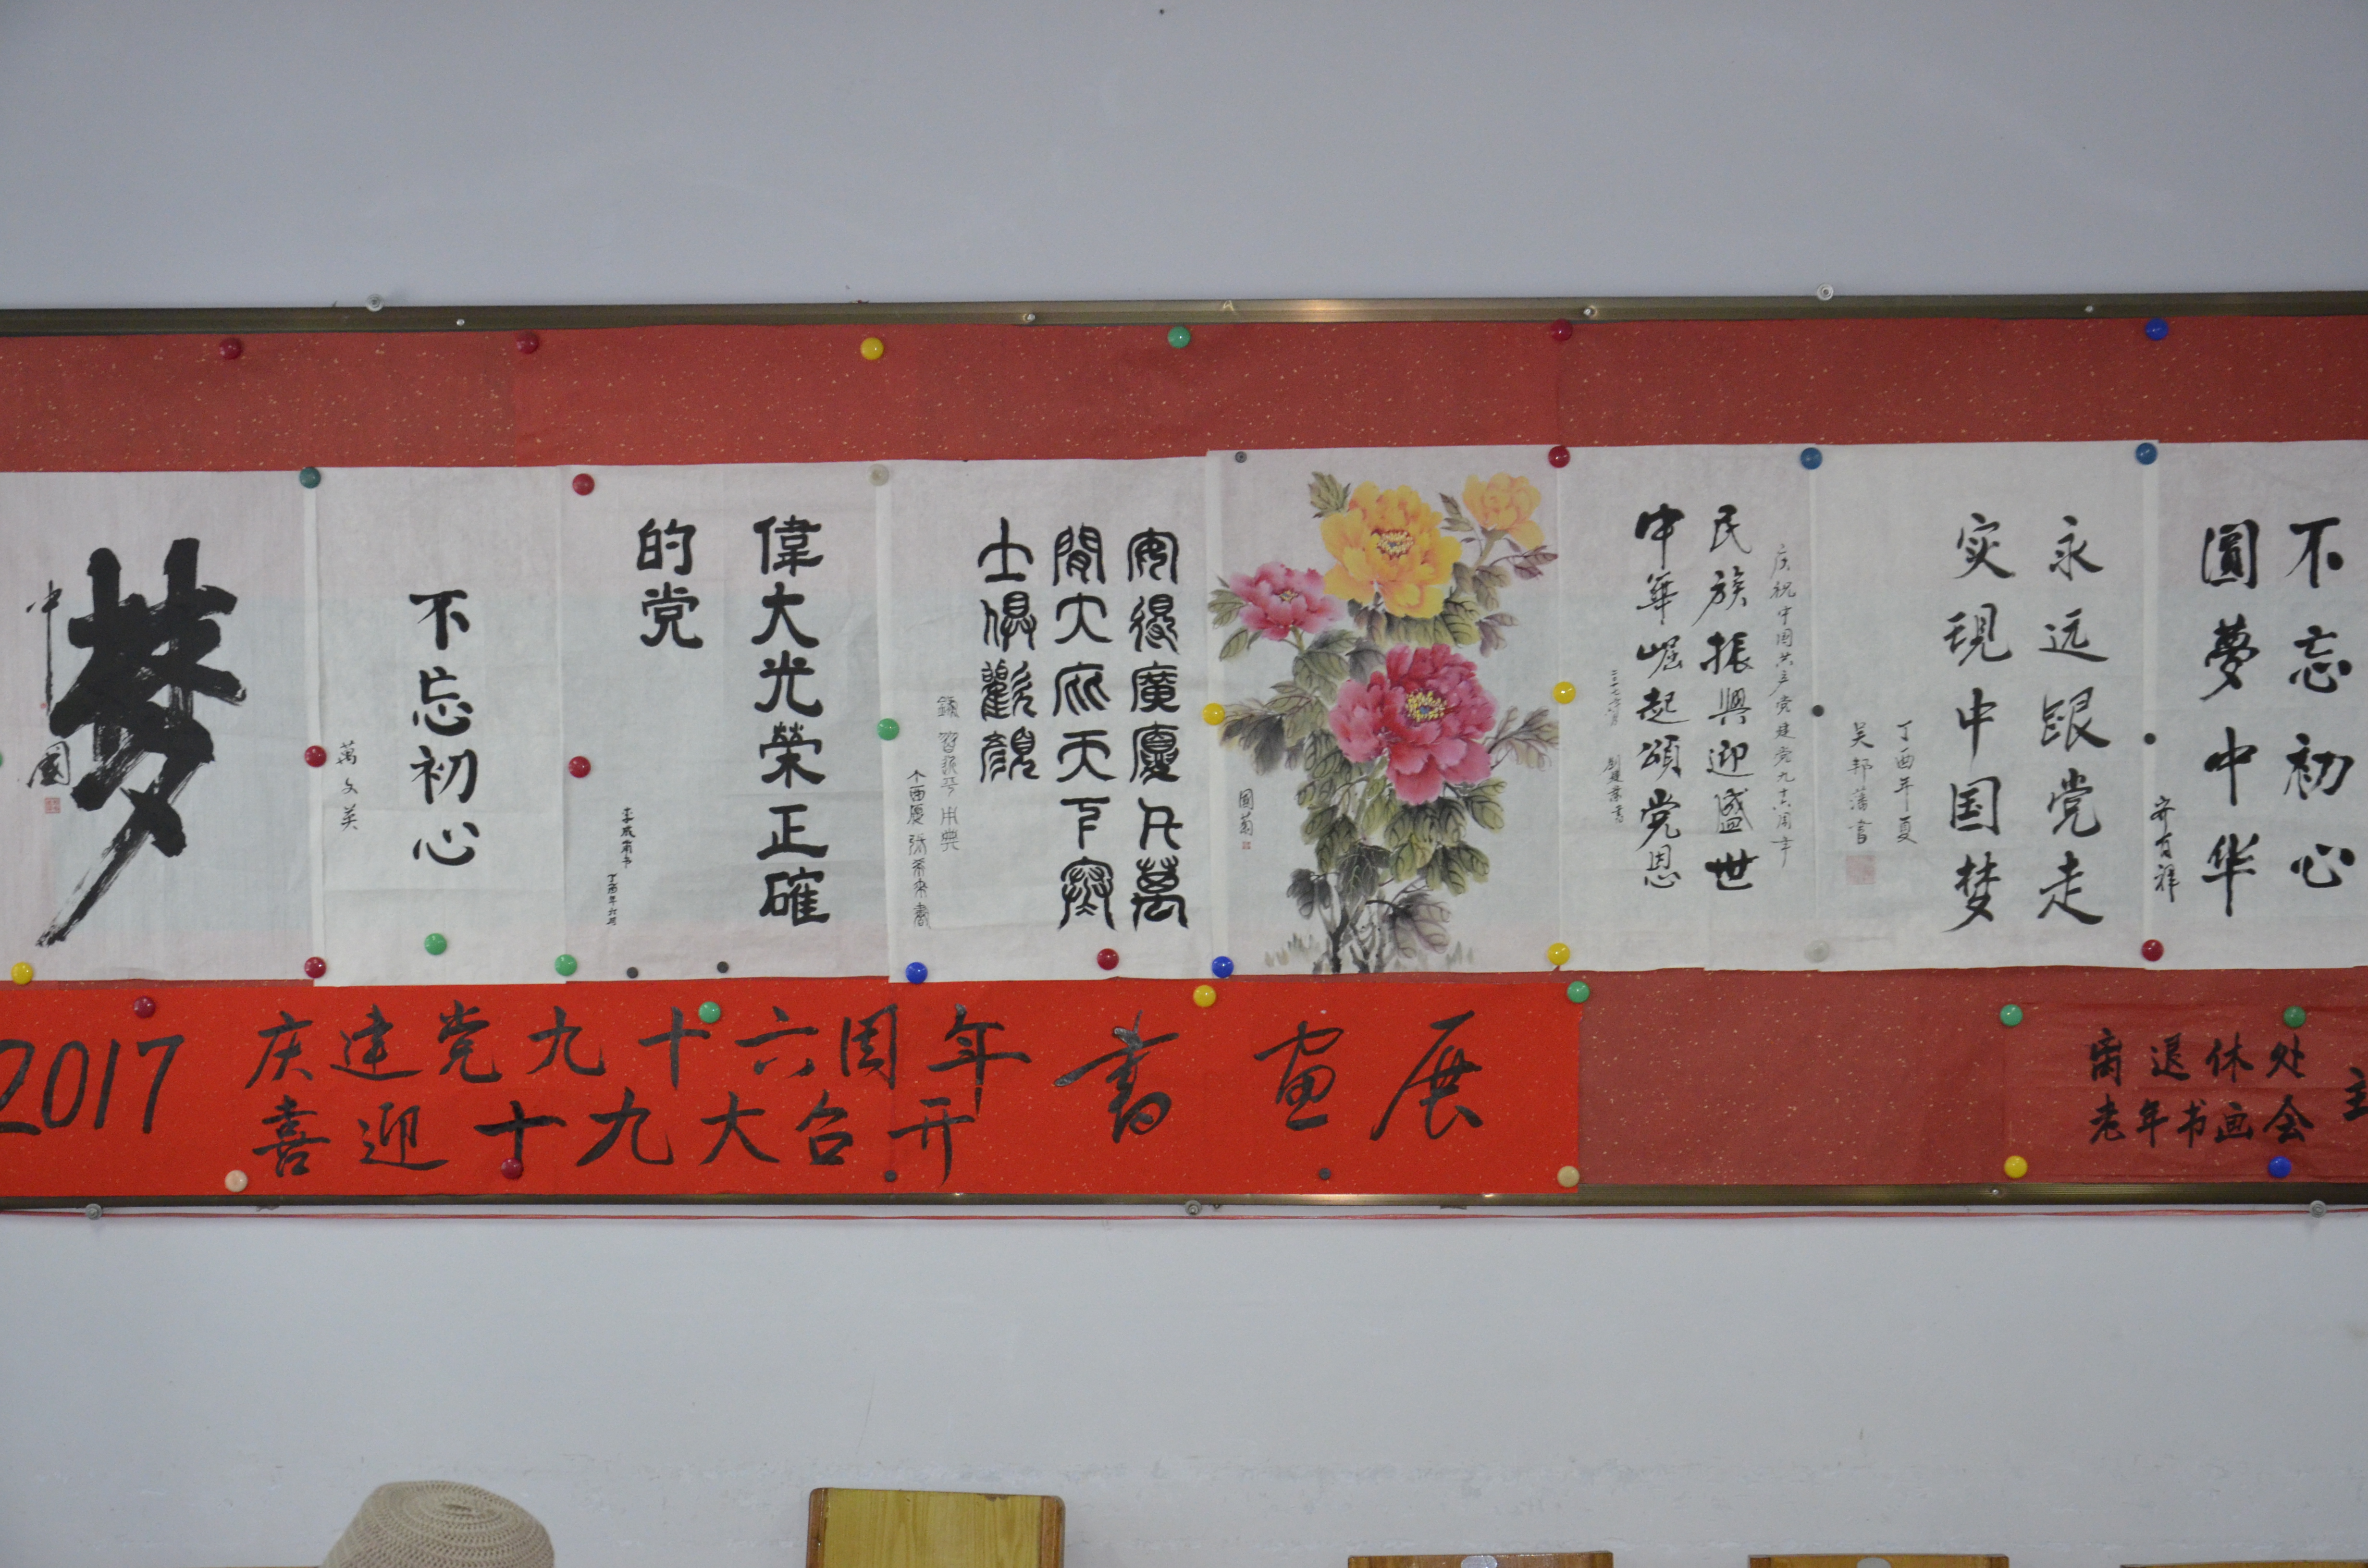 梦
中國
不忘初心
萬文英
偉大光榮正確
的党
丁酉年六月
安得廣廈千萬
間大庇天下寒
士俱歡顏
錄習近平用典
丁酉夏
庆祝中国共产党建党九十六周年
民族振興迎盛世
中華崛起頌党恩
劉建業書
永远跟党走
实现中国梦
丁酉年夏
吴邦藩書
不忘初心
圓夢中华
安有祥
2017
庆建党九十六周年
喜迎十九大召开
書画展
离退休处
老年书画会
主